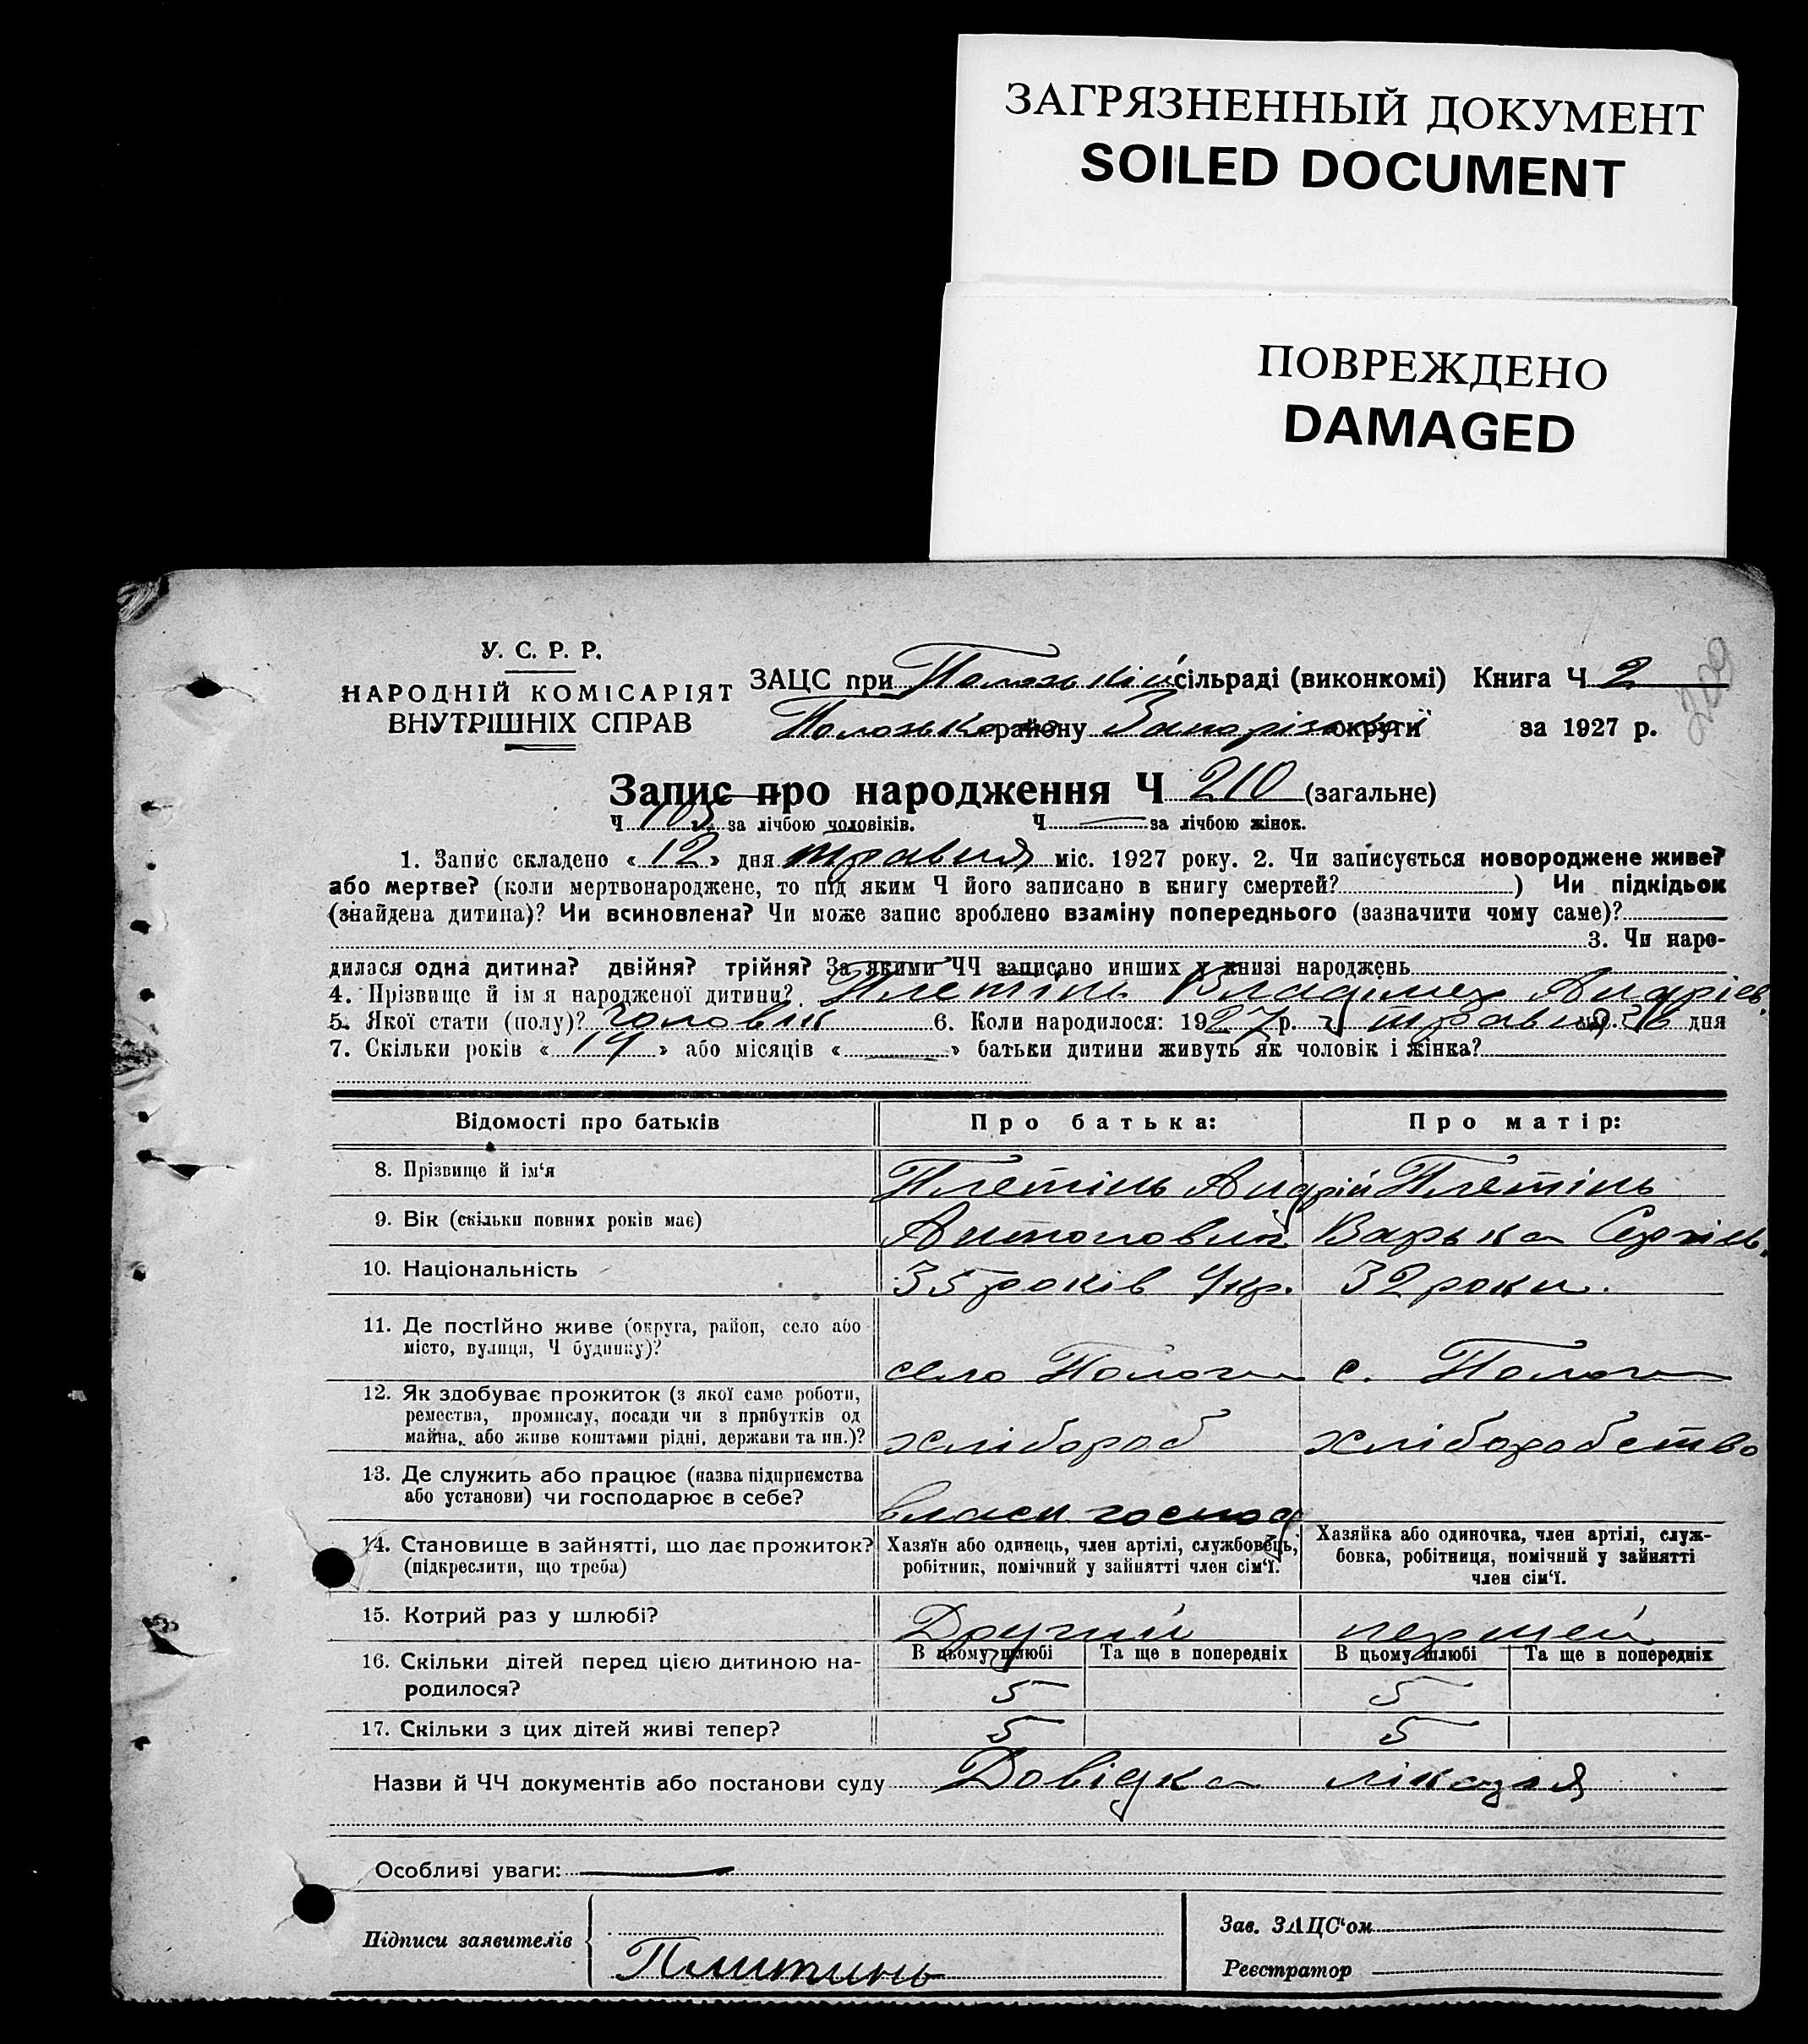 ЗАГРЯЗНЕННЫЙ ДОКУМЕНТ
SOILED DOCUMENT
ПОВРЕЖДЕНО
DAMAGED
209
У. С. Р. Р.
НАРОДНІЙ КОМІСАРІЯТ
ВНУТРІШНІХ СПРАВ
ЗАЦС при сільраді (виконкомі) Книга Ч 2
району округи за 1927 р.
Запис про народження Ч 210 (загальне)
Ч 103 за лічбою чоловіків. Ч — за лічбою жінок.
1. Запис складено « 12 » дня травня міс. 1927 року. 2. Чи записується новороджене живе?
або мертве? (коли мертвонароджене, то під яким Ч його записано в книгу смертей? ) Чи підкідьок
(знайдена дитина)? Чи всиновлена? Чи може запис зроблено взаміну попереднього (зазначити чому саме)?
3. Чи наро-
дилася одна дитина? двійня? трійня? За якими ЧЧ записано инших у книзі народжень
4. Прізвище й ім я народженої дитини? Плетінь Владімер Андріев.
5. Якої стати (полу)? чоловік 6. Коли народилося: 1927 р. травня міс. дня
7. Скільки років « 14 » або місяців « — » батьки дитини живуть як чоловік і жінка?
Відомості про батьків Про батька: Про матір:
8. Прізвище й ім‘я Плетінь Андрій Плетінь
9. Вік (скільки повних років має) Антонович Варька Сергіев.
10. Національність 35 років Укр. 32 роки.
11. Де постійно живе (округа, район, село або
місто, вулиця, Ч будинку)? село Пологи с. Пологи
12. Як здобуває прожиток (з якої саме роботи,
ремества, промислу, посади чи з прибутків од
майна, або живе коштами рідні, держави та ин.)? хлібороб хліборобство
13. Де служить або працює (назва підприємства
або установи) чи господарює в себе? власн. господ
14. Становище в зайнятті, що дає прожиток?
(підкреслити, що треба)
Хазяїн або одинець, член артілі, службовець,
робітник, помічний у зайнятті член сім‘ї.
Хазяйка або одиночка, член артілі, служ-
бовка, робітниця, помічний у зайнятті
член сім‘ї.
15. Котрий раз у шлюбі? Другий першей
16. Скільки дітей перед цією дитиною на-
родилося?
В цьому шлюбі Та ще в попередніх В цьому шлюбі Та ще в попередніх
5 5
17. Скільки з цих дітей живі тепер? 5 5
Назви й ЧЧ документів або постанови суду Довідка лікаря
Особливі уваги: —
Підписи заявителів
Плитинь
Зав. ЗАЦС‘ом
Реєстратор